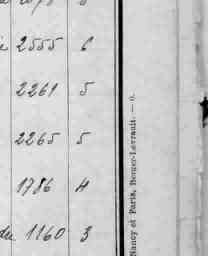 2555 6
2261 5
2265 5
1786 4
du 1160 3
Nancy et Paris, Berger-Levrault. — 6.